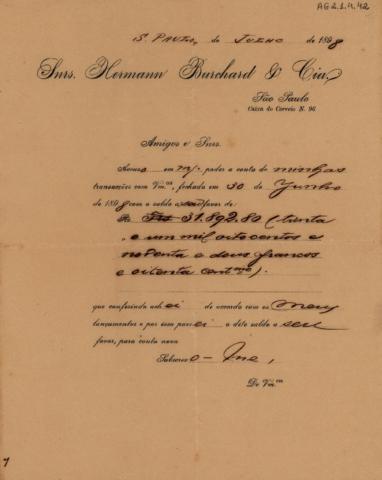 AG2.1.4.42
S. Paulo, de Julho de 1898
Snrs. Hermann Burchard & Cia,
São Paulo
Caixa do Correio N. 96
Amigos e Snrs.
em m/. poder a conta de minhas
transacções com V.ces, fechada em 30 de Junho
de 1898 com o saldo a favor de:
31.892.80 (trinta
e um mil oitocentos e
noventa e dous francos
e oitenta cent.mos).
que conferindo achei de accordo com os meus
lançamentos e por isso passei o dito saldo a seu
favor, para conta nova
De V.ces